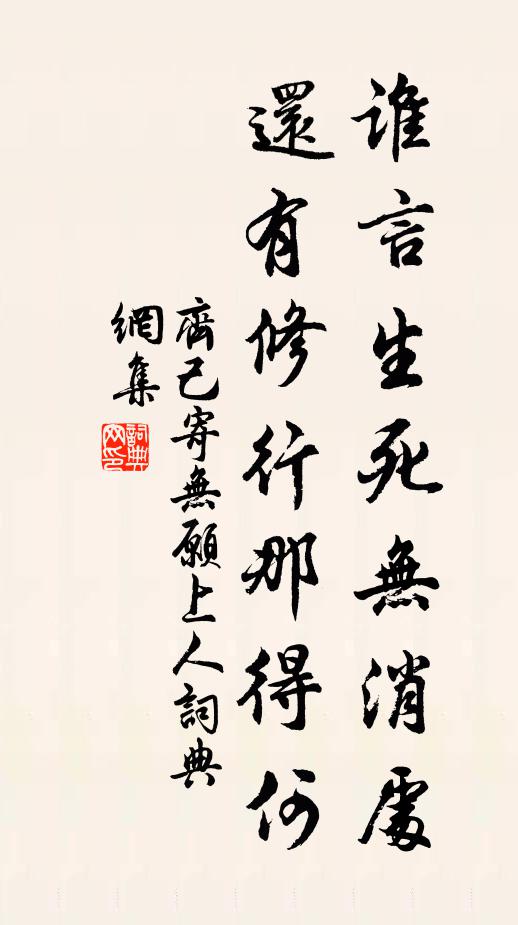 誰言生死無消處
還有修行那得何
齊己寄無願上人詞典
網集
詞典網印